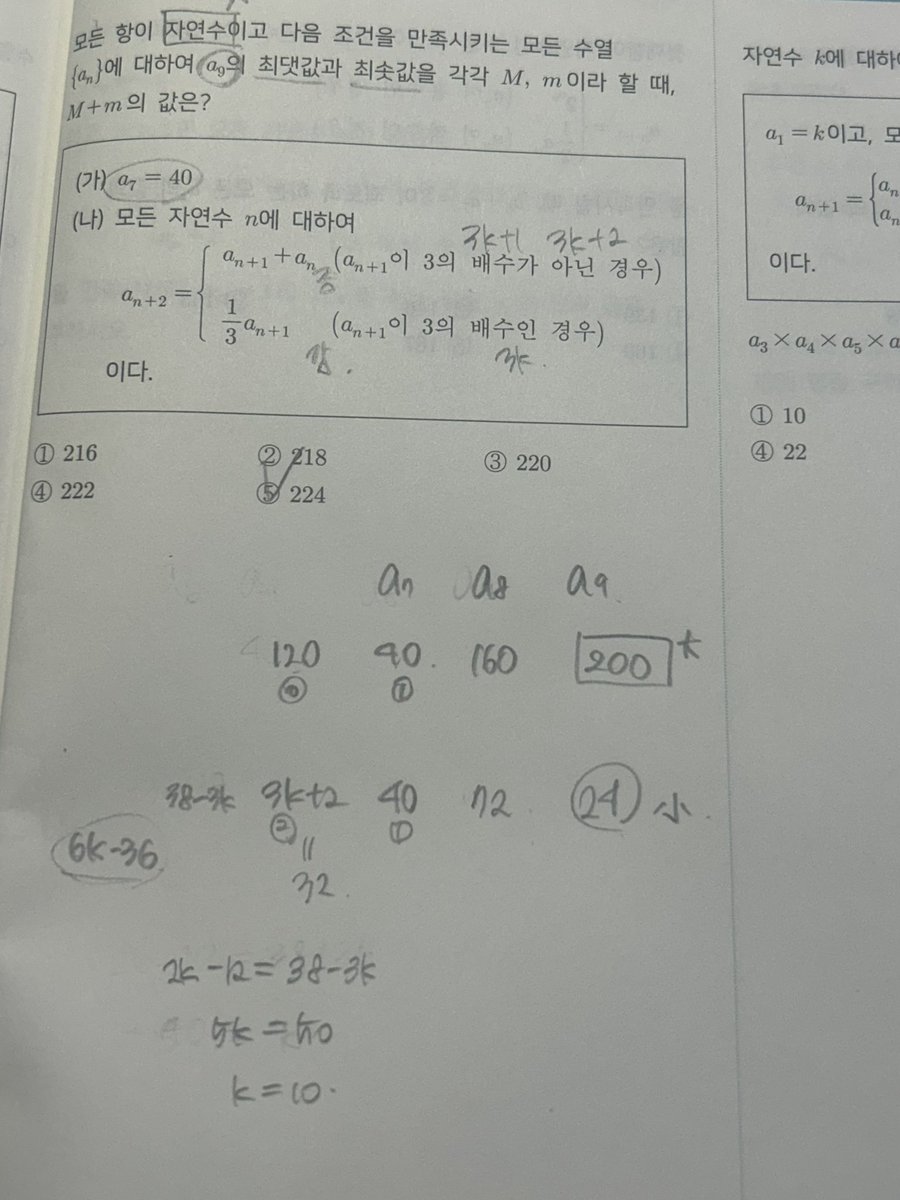 모든 항이 자연수이고 다음 조건을 만족시키는 모든 수열
{aₙ}에 대하여 a₉의 최댓값과 최솟값을 각각 M, m이라 할 때,
M+m의 값은?
(가) a₇ = 40
(나) 모든 자연수 n에 대하여
3k+1 3k+2
aₙ₊₂ = { aₙ₊₁ + aₙ (aₙ₊₁이 3의 배수가 아닌 경우)
증
1/3 aₙ₊₁ (aₙ₊₁이 3의 배수인 경우)
감. 3k.
이다.
① 216 ② 218 ③ 220
④ 222 ⑤ 224
a₇ a₈ a₉
120 40. 160 200 大
⓪ ①
38-3k 3k+2 40 72 24 小.
② ①
6k-36 ||
32.
2k-12=38-3k
5k=50
k=10.
자연수 k에 대하
a₁ = k이고, 모
aₙ₊₁ = { aₙ
aₙ
이다.
a₃×a₄×a₅×a
① 10
④ 22